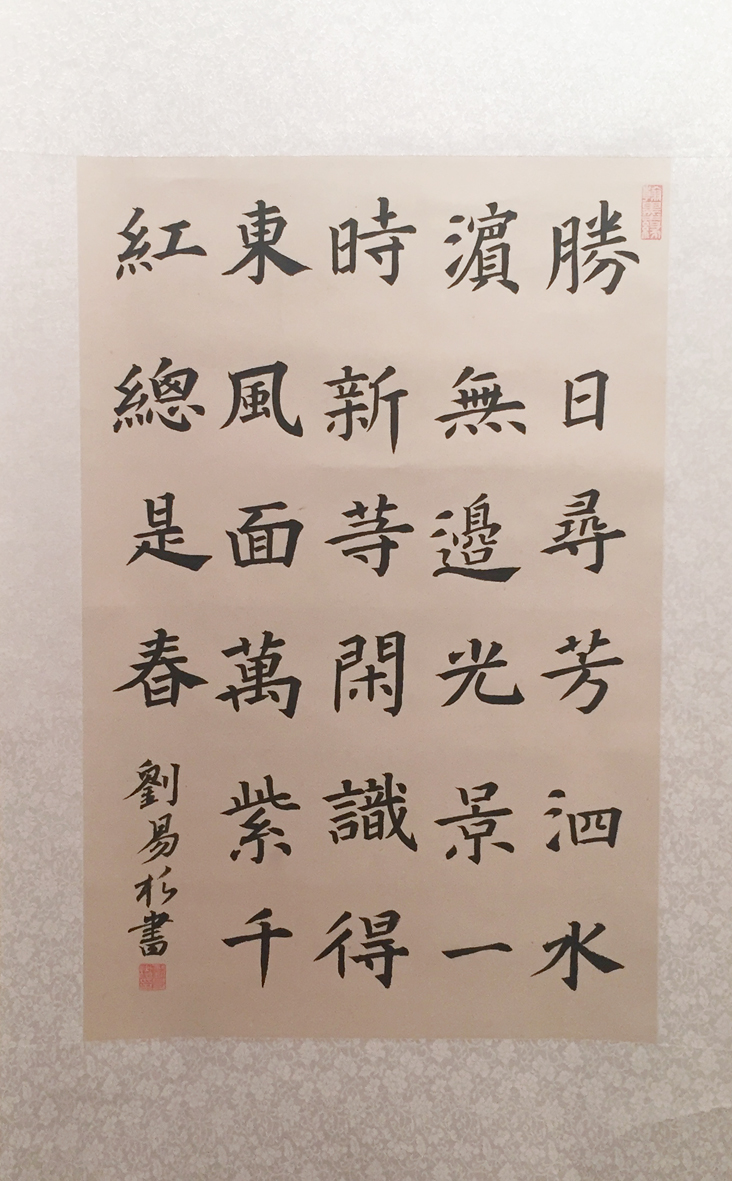 勝日尋芳泗水
濵無邊光景一
時新等閑識得
東風面萬紫千
紅總是春
劉易杉書